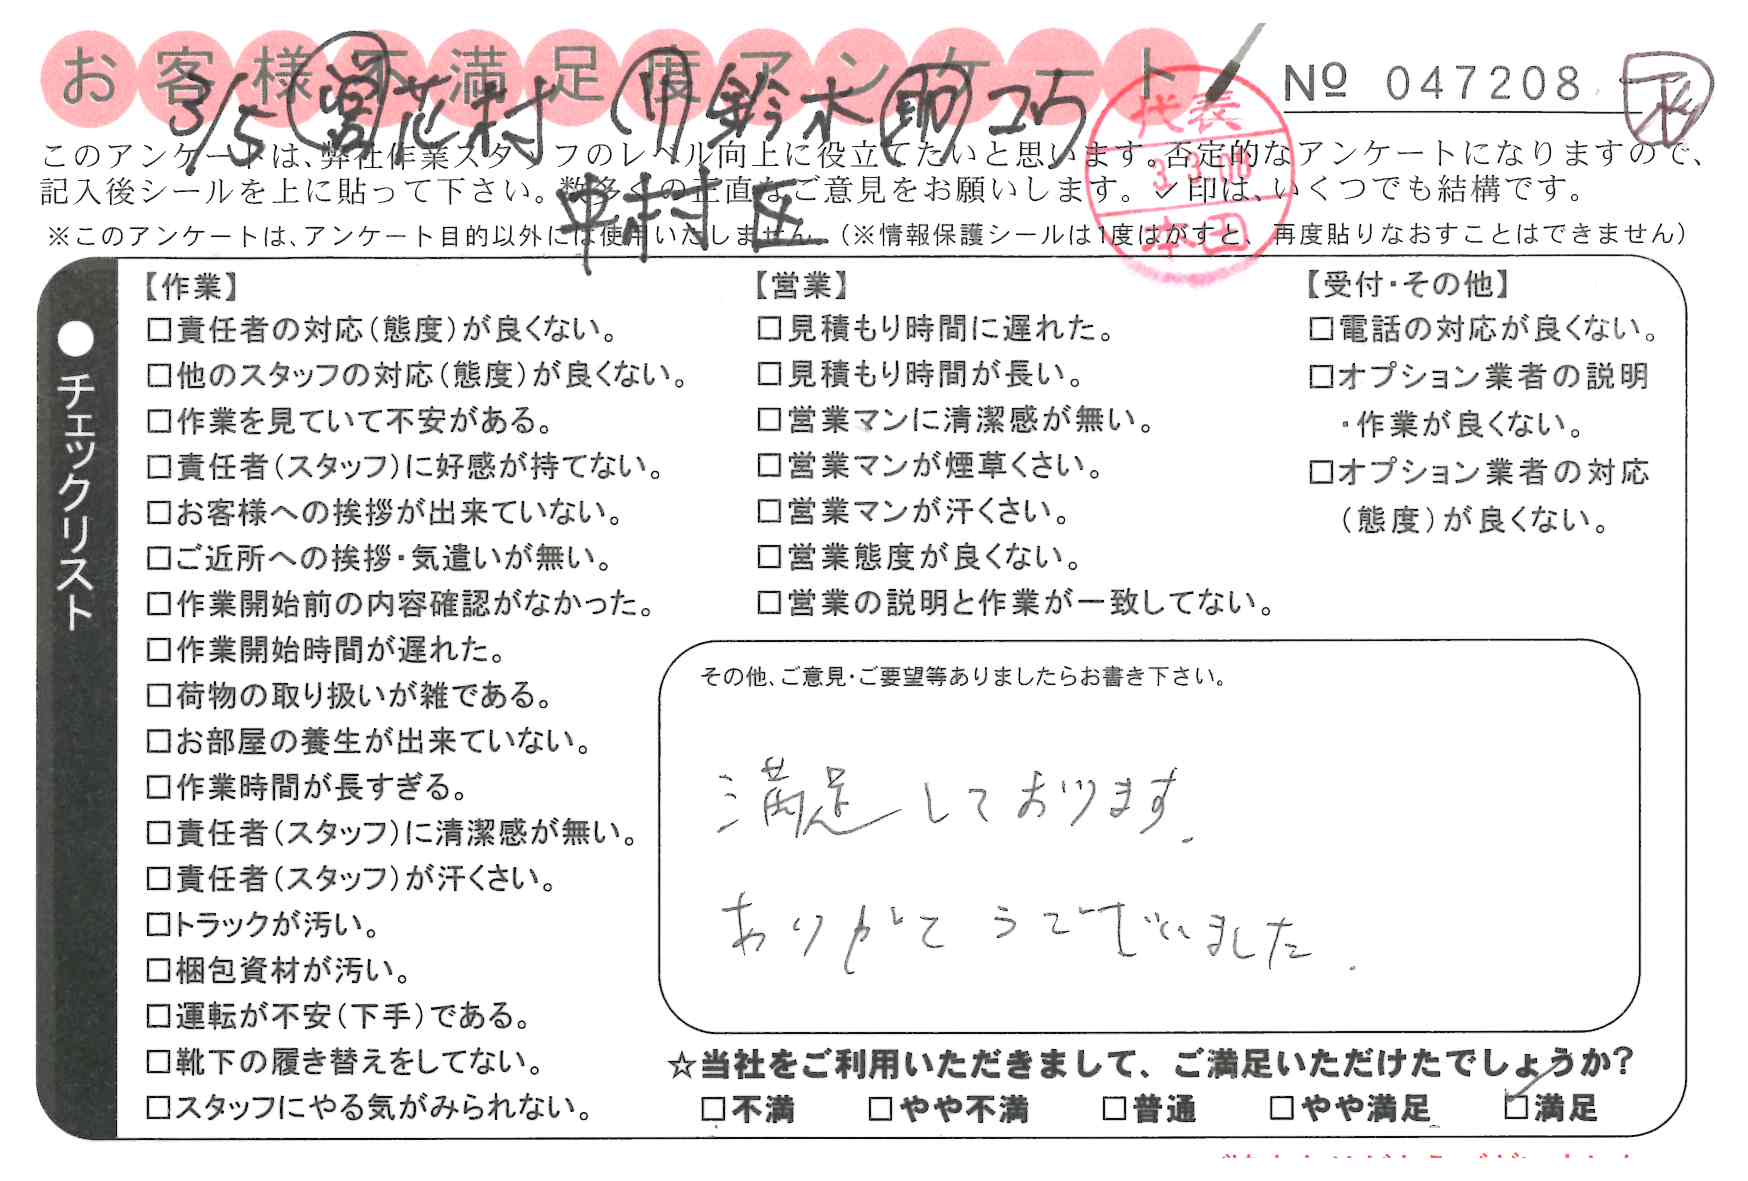 お客様不満足度アンケート
No 047208
3/5 営 花村 リ 鈴木 助 コウ
中村区
代表
3.3.08
本田
このアンケートは、弊社作業スタッフのレベル向上に役立てたいと思います。否定的なアンケートになりますので、
記入後シールを上に貼って下さい。数多くの正直なご意見をお願いします。✓印は、いくつでも結構です。
※このアンケートは、アンケート目的以外には使用いたしません。(※情報保護シールは1度はがすと、再度貼りなおすことはできません)
●チェックリスト
【作業】
□責任者の対応(態度)が良くない。
□他のスタッフの対応(態度)が良くない。
□作業を見ていて不安がある。
□責任者(スタッフ)に好感が持てない。
□お客様への挨拶が出来ていない。
□ご近所への挨拶・気遣いが無い。
□作業開始前の内容確認がなかった。
□作業開始時間が遅れた。
□荷物の取り扱いが雑である。
□お部屋の養生が出来ていない。
□作業時間が長すぎる。
□責任者(スタッフ)に清潔感が無い。
□責任者(スタッフ)が汗くさい。
□トラックが汚い。
□梱包資材が汚い。
□運転が不安(下手)である。
□靴下の履き替えをしてない。
□スタッフにやる気がみられない。
【営業】
□見積もり時間に遅れた。
□見積もり時間が長い。
□営業マンに清潔感が無い。
□営業マンが煙草くさい。
□営業マンが汗くさい。
□営業態度が良くない。
□営業の説明と作業が一致してない。
【受付・その他】
□電話の対応が良くない。
□オプション業者の説明
・作業が良くない。
□オプション業者の対応
(態度)が良くない。
その他、ご意見・ご要望等ありましたらお書き下さい。
満足しております.
ありがとうございました.
☆当社をご利用いただきまして、ご満足いただけたでしょうか?
□不満 □やや不満 □普通 □やや満足 ☑満足